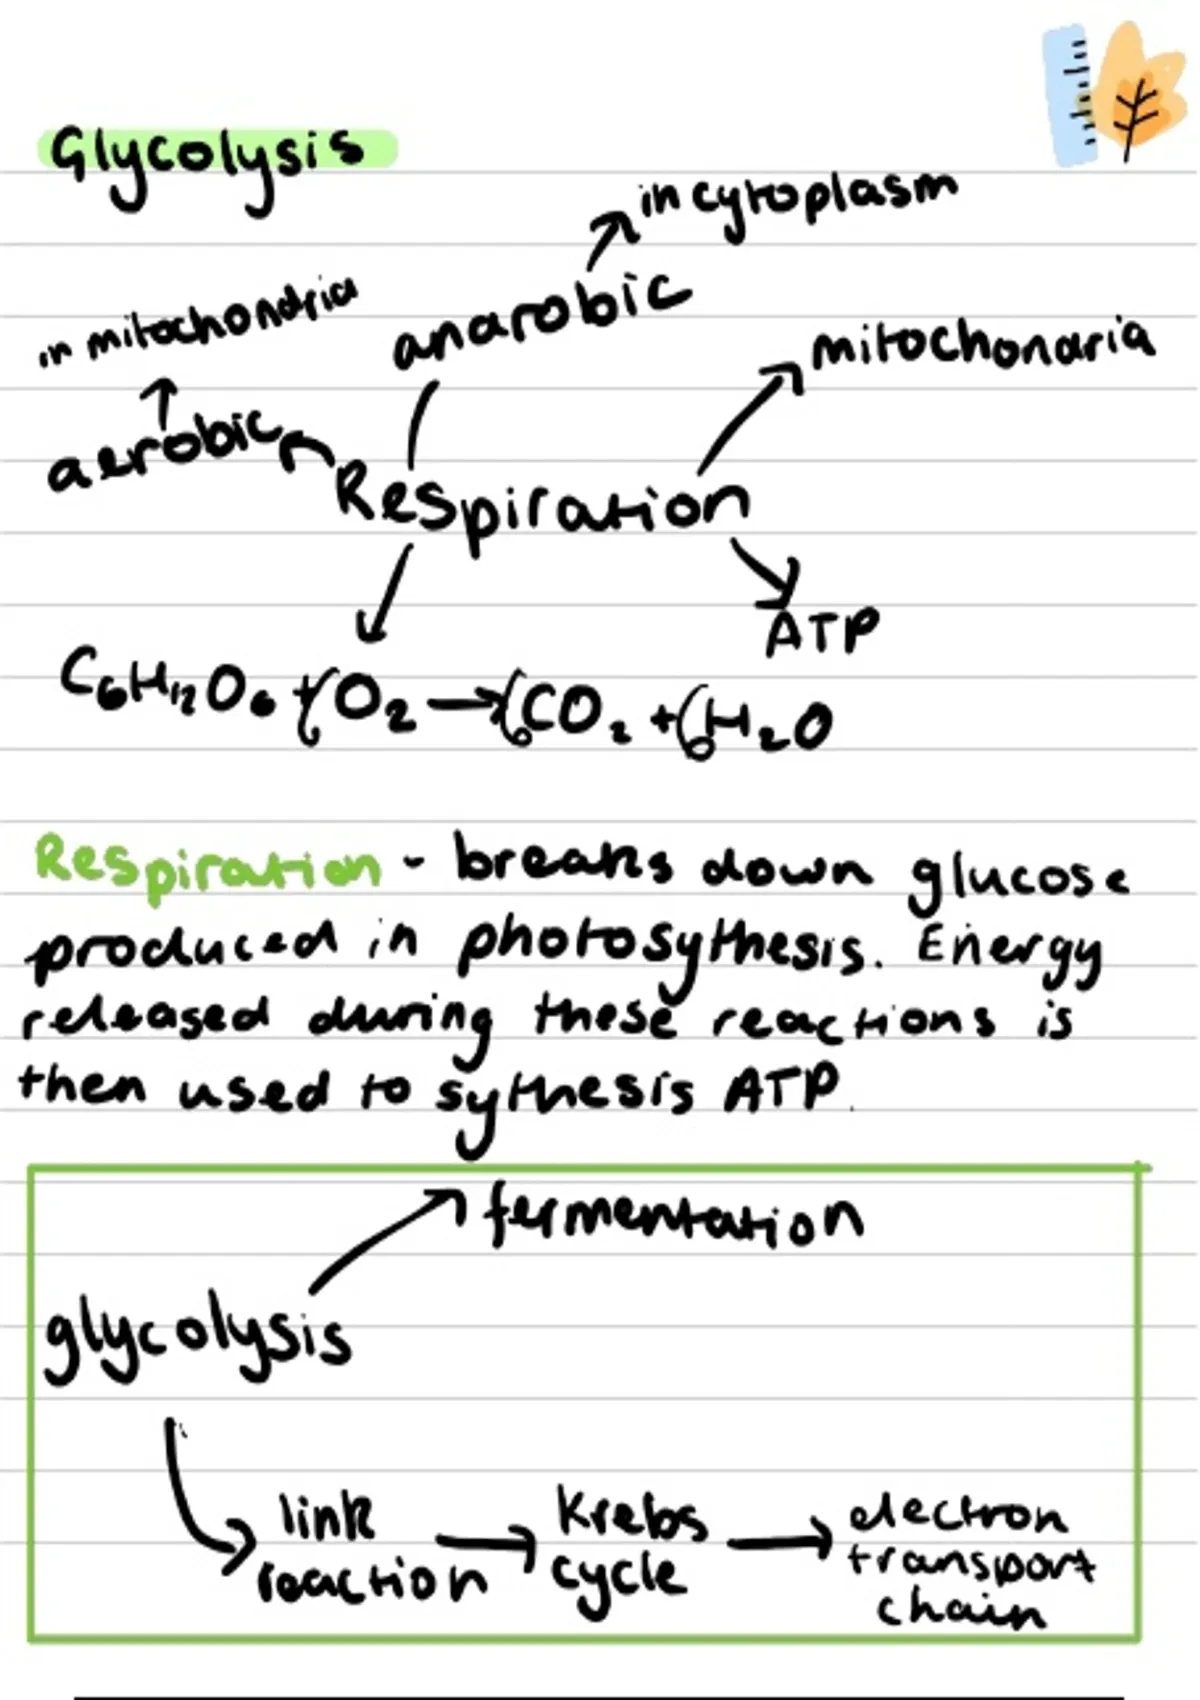 Glycolysis
in cytoplasm
in mitochondria
anarobic
mitochondria
aerobic
Respiration
ATP
C6H12O6 + 6O2 → 6CO2 + 6H2O
Respiration - breaks down glucose
produced in photosythesis. Energy
released during these reactions is
then used to sythesis ATP.
fermentation
glycolysis
link
reaction
Krebs
cycle
electron
transport
chain